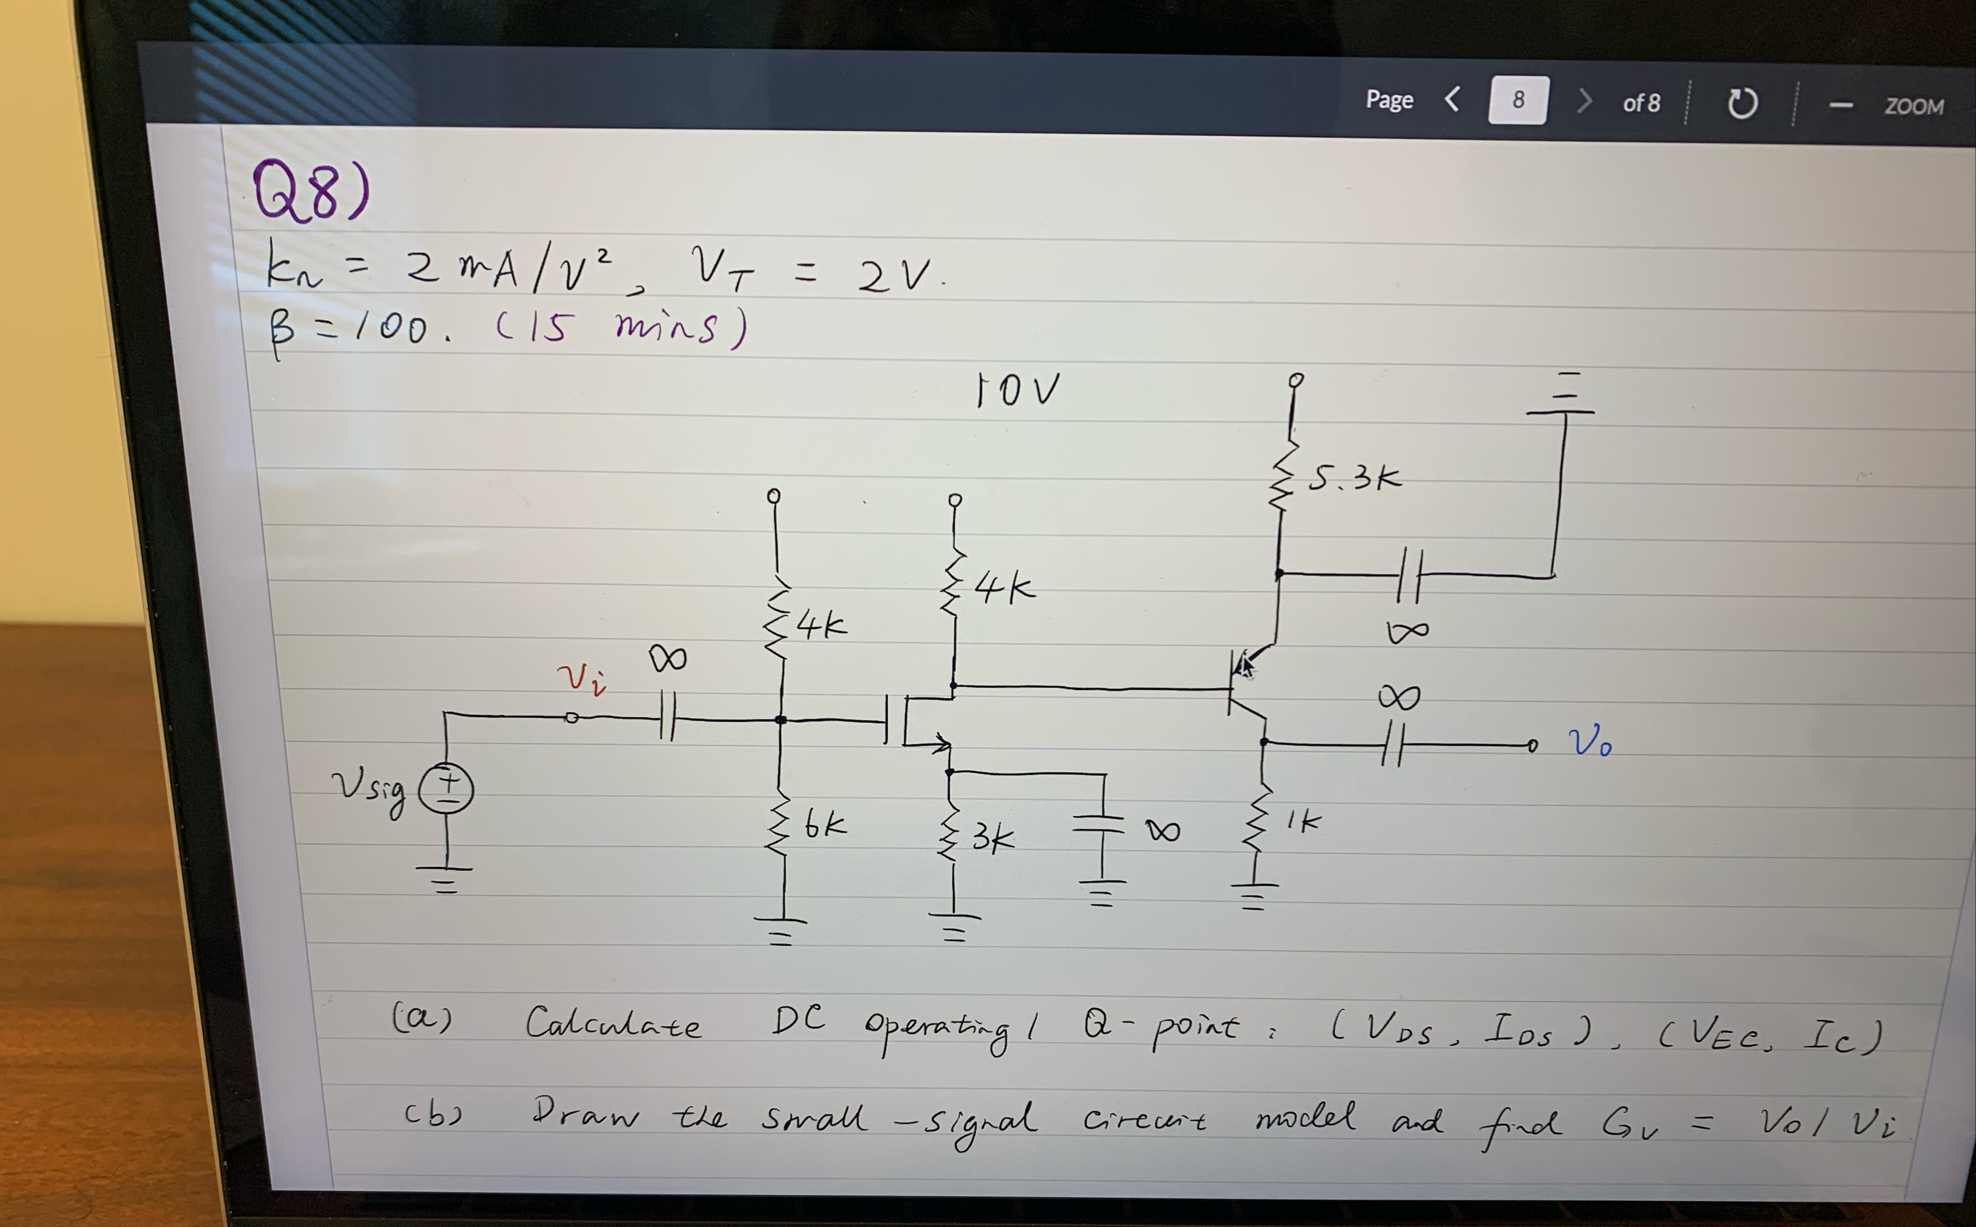 Page 8 of 8 ZOOM
Q8)
kn = 2 mA/V², VT = 2V.
β = 100. (15 mins)
10V
5.3K
4K
4K
∞
∞
Vi
∞
Vo
Vsig
6K
3K
∞
1K
(a) Calculate DC operating / Q-point : (VDS, IDS), (VEC, IC)
(b) Draw the small-signal circuit model and find Gv = Vo/Vi